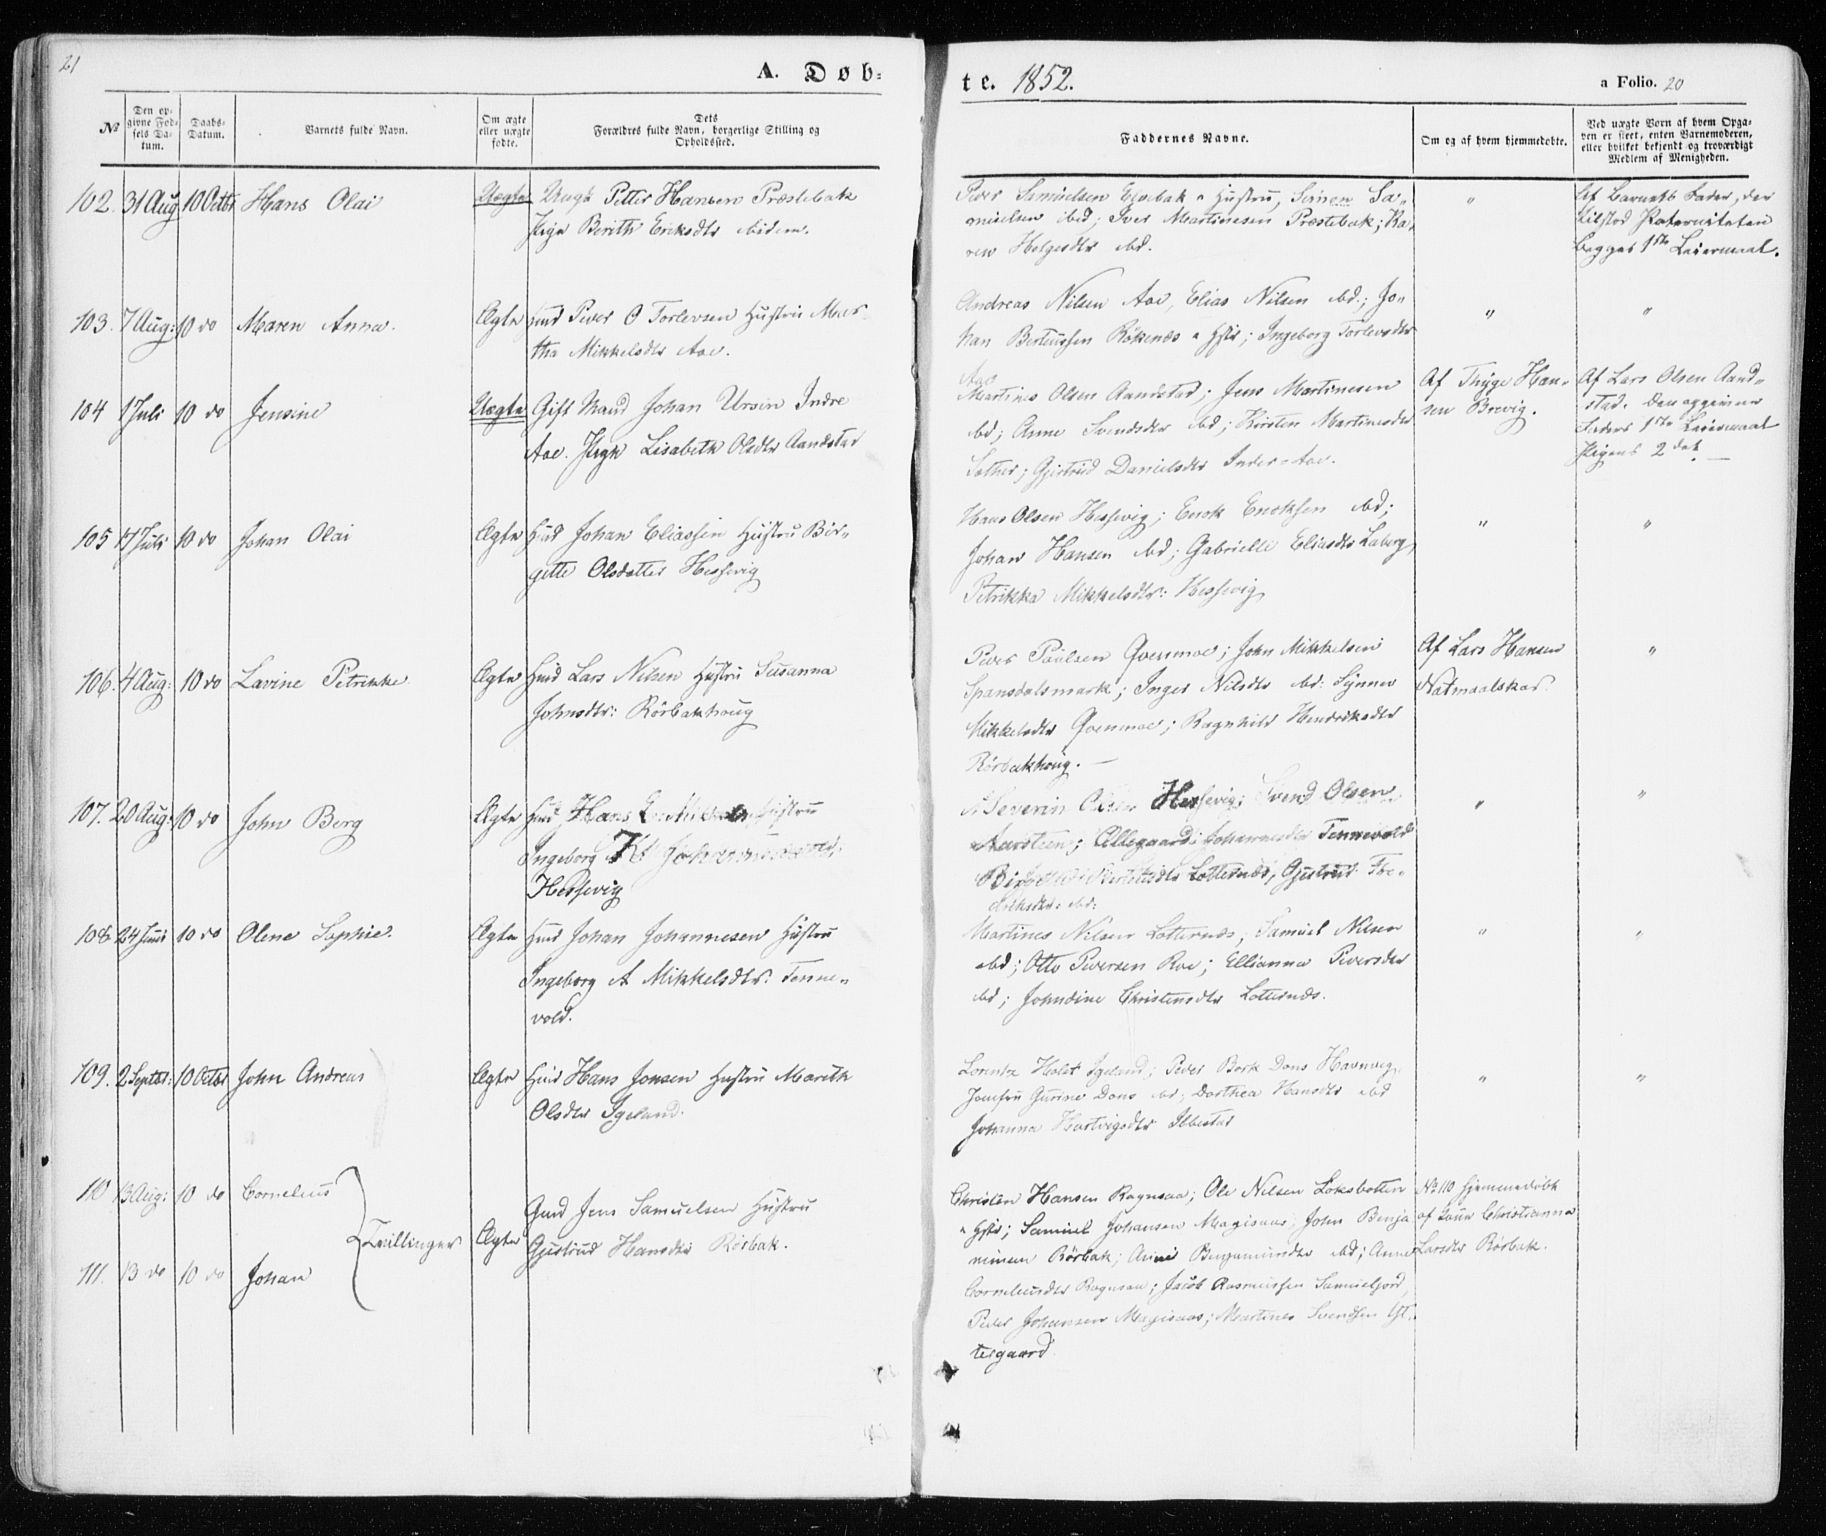 21
A. Døb-
te. 1852.
a Folio. 20
№
Den op-
givne Fød-
sels Da-
tum.
Daabs-
Datum.
Barnets fulde Navn.
Om ægte
eller uægte
fødte.
Dets
Forældres fulde Navn, borgerlige Stilling og
Opholdssted.
Faddernes Navne.
Om og af hvem hjemmedøbte.
Ved uægte Børn af hvem Opga-
ven er skeet, enten Barnemoderen,
eller hvilket bekjendt og troværdigt
Medlem af Menigheden.
102. 31 Aug 10 Octbr Hans Olai Uægte Ungk Petter Hansen Præstebak
Pige Berith Eriksdtr ibidem.
Peder Samuelsen Elvebak & Hustru, Simon Sa-
muelsen ibd; Iver Martinesen Præstebak; Ka-
ren Helgesdtr ibd.
"
Af Barnets Fader, der
tilstod Paterniteten
begges 1ste Leiermaal.
103. 7 Aug: 10 do Maren Anna. Ægte Hmd Peder O Torlevsen Hustru Mar-
tha Mikkelsdtr Aae.
Andreas Nilsen Aae, Elias Nilsen ibd.; Jo-
han Berteussen Rökenæs & Hstr; Ingeborg Torlevsdtr
Aae
" "
104 1 Juli 10 do Jensine Uægte Gift Mand Johan Ursin Indre
Aae. Pige Lisabeth Olsdtr Aandstad
Martines Olsen Aandstad; Jens Martinesen
ibd; Anne Svendsdtr ibd; Kirsten Martinesdtr
Sother; Gjertrud Danielsdtr Inder-Aae.
Af Thyge Han-
sen Brevig.
Af Lars Olsen Aand-
stad. Den opgivne
Faders 1ste Leiermaal
Pigens 2det.
105 17 Juli 10 do Johan Olai Ægte Hmd Johan Eliassen Hustru Bir-
gitte Olsdatter Hessevig
Hans Olsen Hessevig; Enok Enoksen ibd;
Johan Hansen ibd; Gabrielle Eliasdtr Laberg
Petrikka Mikkelsdtr: Hessevig
" "
106. 4 Aug: 10 do Lavine Petrikke Ægte Hmd Lars Nilsen Hustru Susanna
Johnsdtr: Rörbakhoug
Peder Paulsen Qvenmoe; John Mikkelsen
Spansdalsmark; Inger Nilsdtr ibd: Synnev
Mikkelsdtr Qvenmoe; Ragnhild Hendriksdtr
Rörbakhoug.
Af Lars Hansen
Natmaalskar.
"
107. 20 Aug: 10 do John Berg Ægte Hmd Hans Hustru
Ingeborg
Hessevig
Severin Hessevig; Svend Olsen
Aarsteen; Ellegaard Johannesdtr Tennevold
Lotternæs, Gjertrud
ibd:
" "
108 24 Juni 10 do Olene Sophie. Ægte Hmd Johan Johannesen Hustru
Ingeborg A Mikkelsdtr: Tenne-
vold.
Martines Nilsen Lotternæs; Samuel Nilsen
ibd; Otto Pedersen Roe; Ellianna Pedersdtr
ibd; Johndine Christensdtr Lotternæs.
" "
109. 2 Septbr: 10 Octbr John Andreas Ægte Hmd Hans Jonsen Hustru Marith
Olsdtr Igeland.
Lorentz Holst Igeland; Peder Bork Dons Havnvig,
Jomfru Gurine Dons ibd; Dorthea Hansdtr ibd
Johanna Hartvigsdtr Ibbestad
" "
110 13 Aug: 10 do Cornelius
Tvillinger Ægte
Gmd Jens Samuelsen Hustru
Gjertrud Hansdtr Rörbak.
111. 13 do 10 do Johan
Christen Hansen Ragnsaa; Ole Nilsen Loksbotten
& Hstr; Samuel Johansen Magisaas; John Benja-
minsen Rörbak; Anne Benjaminsdtr ibd; Anne
Corneliusdtr Ragnsaa; Jacob Rasmussen Samuelsjord,
Peder Johansen Magisaas; Martines Svendsen Yt-
tergaard
No 110 hjemmedøbt
af Christianna
Larsdtr Rörbak.